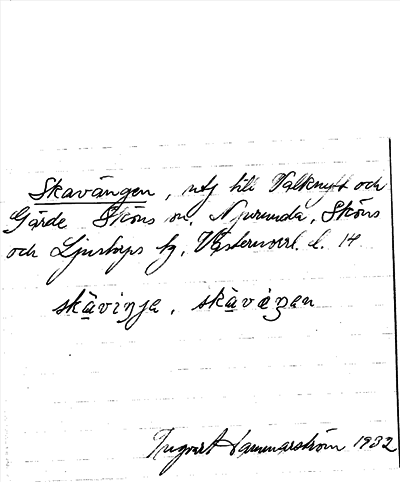 Skavängen, utj till Valknytt och
Gärde Sköns sn. Njurunda, Sköns
och Ljustorps tg, Västernorrl. l. 14
skàviŋja, skàvèŋen
Ingvart Hammarström 1932